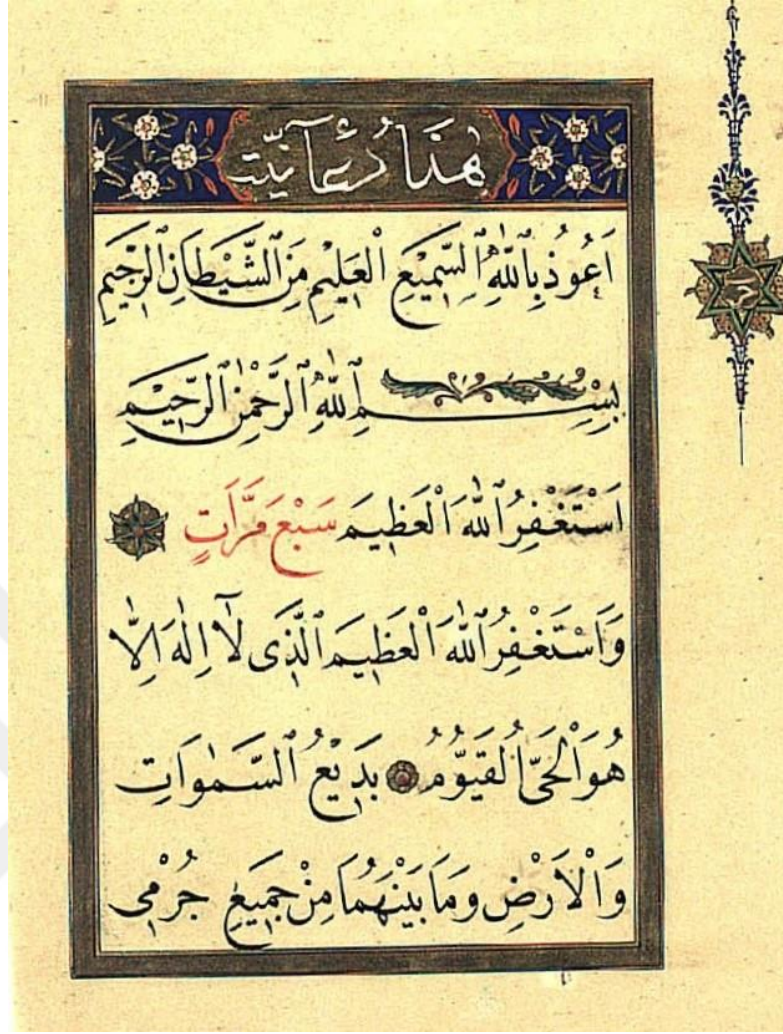 هٰذَا دُعَٓا نِيَّت
اَعُوذُ بِٱللّٰهِ ٱلسَّمِيْعِ الْعَلِيْمِ مِنَ ٱلشَّيْطَانِ ٱلرَّجِيْمِ
بِسْمِ ٱللّٰهِ ٱلرَّحْمٰنِ ٱلرَّحِيْمِ
اَسْتَغْفِرُ ٱللّٰهَ الْعَظِيْمَ سَبْعَ مَرَّاتٍ
وَاَسْتَغْفِرُ ٱللّٰهَ الْعَظِيْمَ ٱلَّذِى لَٓا اِلٰهَ اِلَّا
هُوَ الْحَىُّ الْقَيُّوْمُ بَدِيْعُ ٱلسَّمٰوَاتِ
وَالْاَرْضِ وَمَا بَيْنَهُمَا مِنْ جَمِيْعِ جُرْمِى